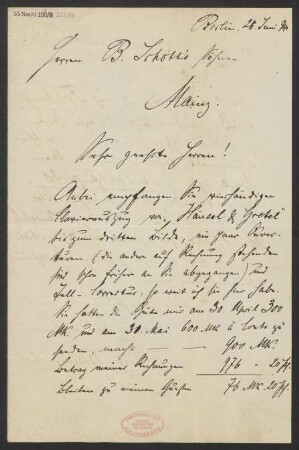 55 Nachl 100/B
Berlin. 28 Juni 94
Herren B. Schott's Söhne
Mainz.
Sehr geehrte Herren!
Anbei empfangen Sie vierhändigen
Clavierauszug von Hänsel & Gretel
bis zum dritten Bilde, ein paar Parti-
turen (die andern auf Rechnung stehenden
sind schon früher an Sie abgegangen) und
Correctur, so weit ich sie hier habe.
Sie hatten die Güte mir am 30. April 300
MK und am 30. Mai 600 MK à Conto zu
senden, macht 900 MK.
Betrag meiner Rechnungen 976 - 20 Pf.
Bleiben zu meinen Gunsten 76 MK. 20 Pf.